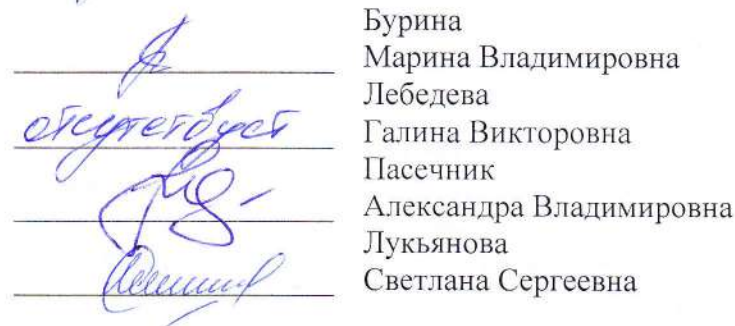 Бурина
Марина Владимировна
Лебедева
отсутствует Галина Викторовна
Пасечник
Александра Владимировна
Лукьянова
Светлана Сергеевна